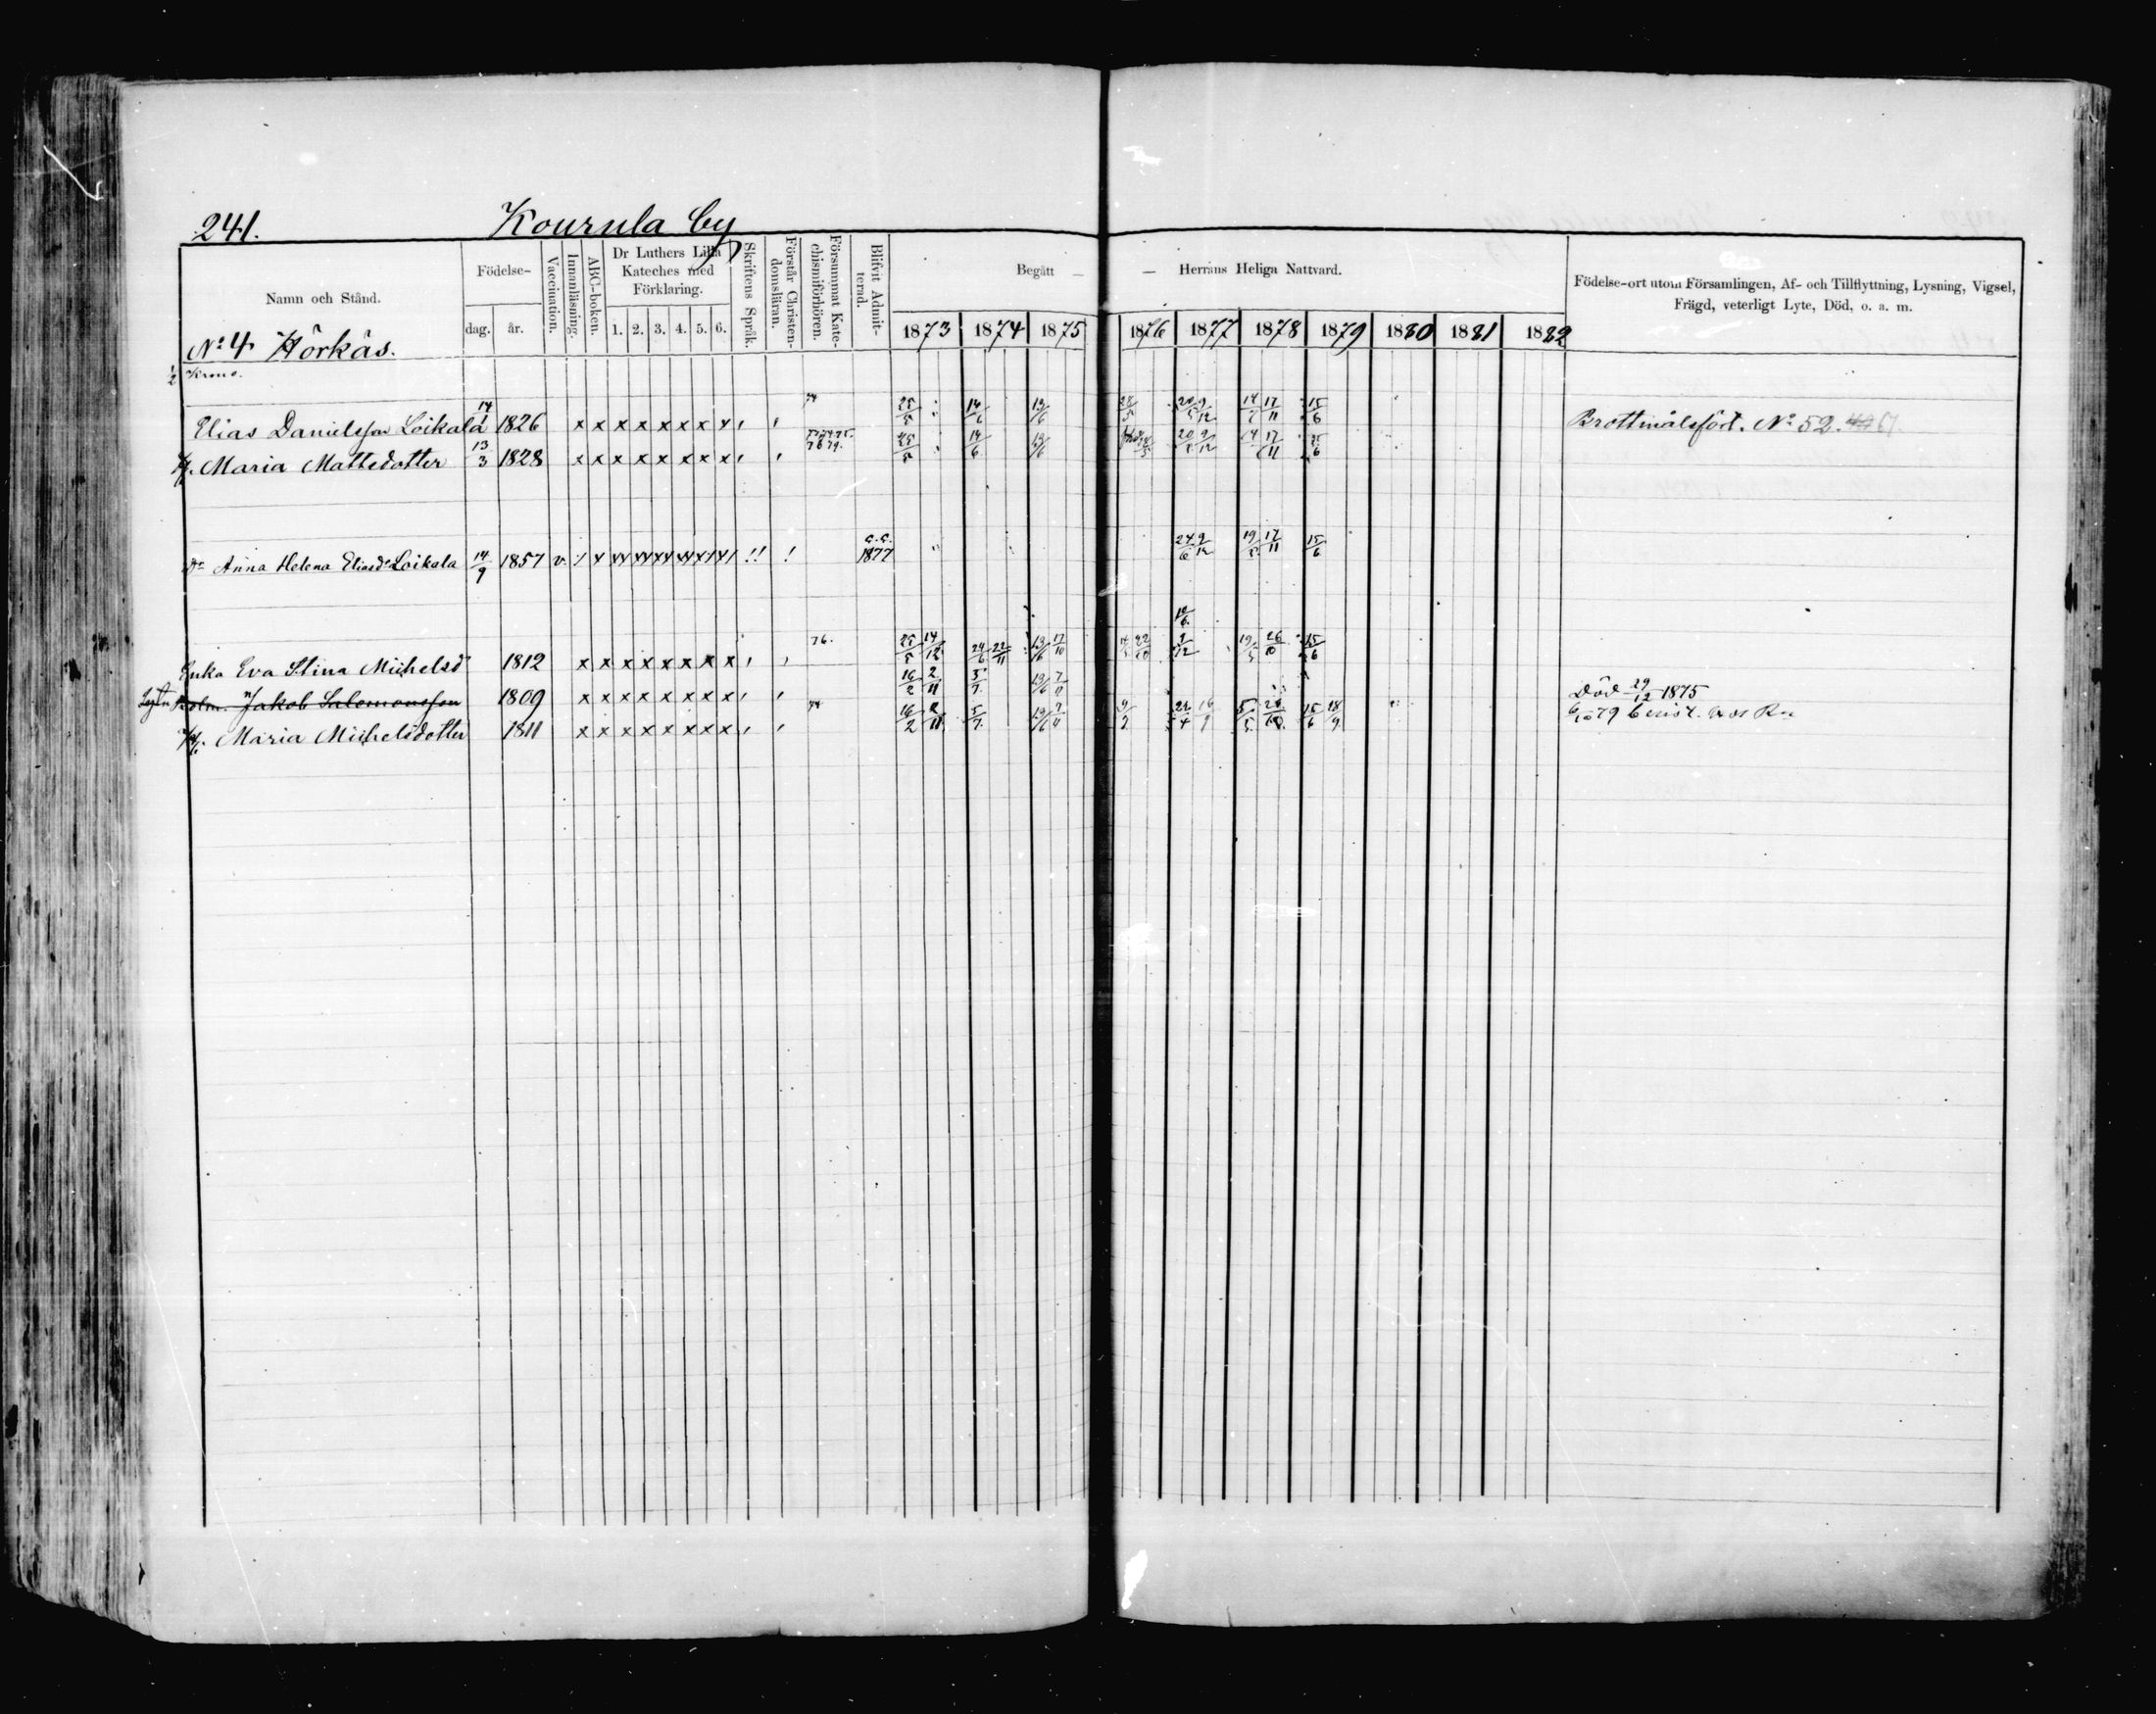 241. Kourula by
Namn och Stånd.
Födelse-
dag. år.
Vaccination.
Innanläsning.
ABC-boken.
Dr Luthers Lilla Kateches med Förklaring.
1. 2. 3. 4. 5. 6.
Skriftens Språk.
Förstår Christen-domsläran.
Försummat Kate-chismiförhören.
Blifvit Admit-terad.
Begått — — Herrans Heliga Nattvard.
1873 1874 1875 1876 1877 1878 1879 1880 1881 1882
Födelse-ort utom Församlingen, Af- och Tillflyttning, Lysning, Vigsel,
Frägd, veterligt Lyte, Död, o. a. m.
No 4 Hörkäs.
1/2 Krono.
Elias Danielsson Loikala 14/1 1826 x x x x x x x x 74 25/5 14/6 13/6 28/5 20/5 9/12 14/7 17/11 15/6 Brottmålsförl. No 52.
H. Maria Mattsdotter 13/3 1828 x x x x x x x x 25/5 14/6 13/6 20/5 9/12 17/11
Dr Anna Helena Eliasdr Loikala 14/9 1857 v !! ! 1877 24/6 9/12 19/5 17/11 15/6
Enka Eva Stina Michelsd 1812 x x x x x x x x 76. 25/5 14/12 24/6 22/11 13/6 17/10 9/12 19/5 26/10 15/6
Jakob Salomonsson 1809 x x x x x x x x 16/2 2/11 5/7 13/6 7/11 Död 29/12 1875
H. Maria Michelsdotter 1811 x x x x x x x x 74 16/2 2/11 5/7 13/6 7/11 15/6 18/9 6/10 79